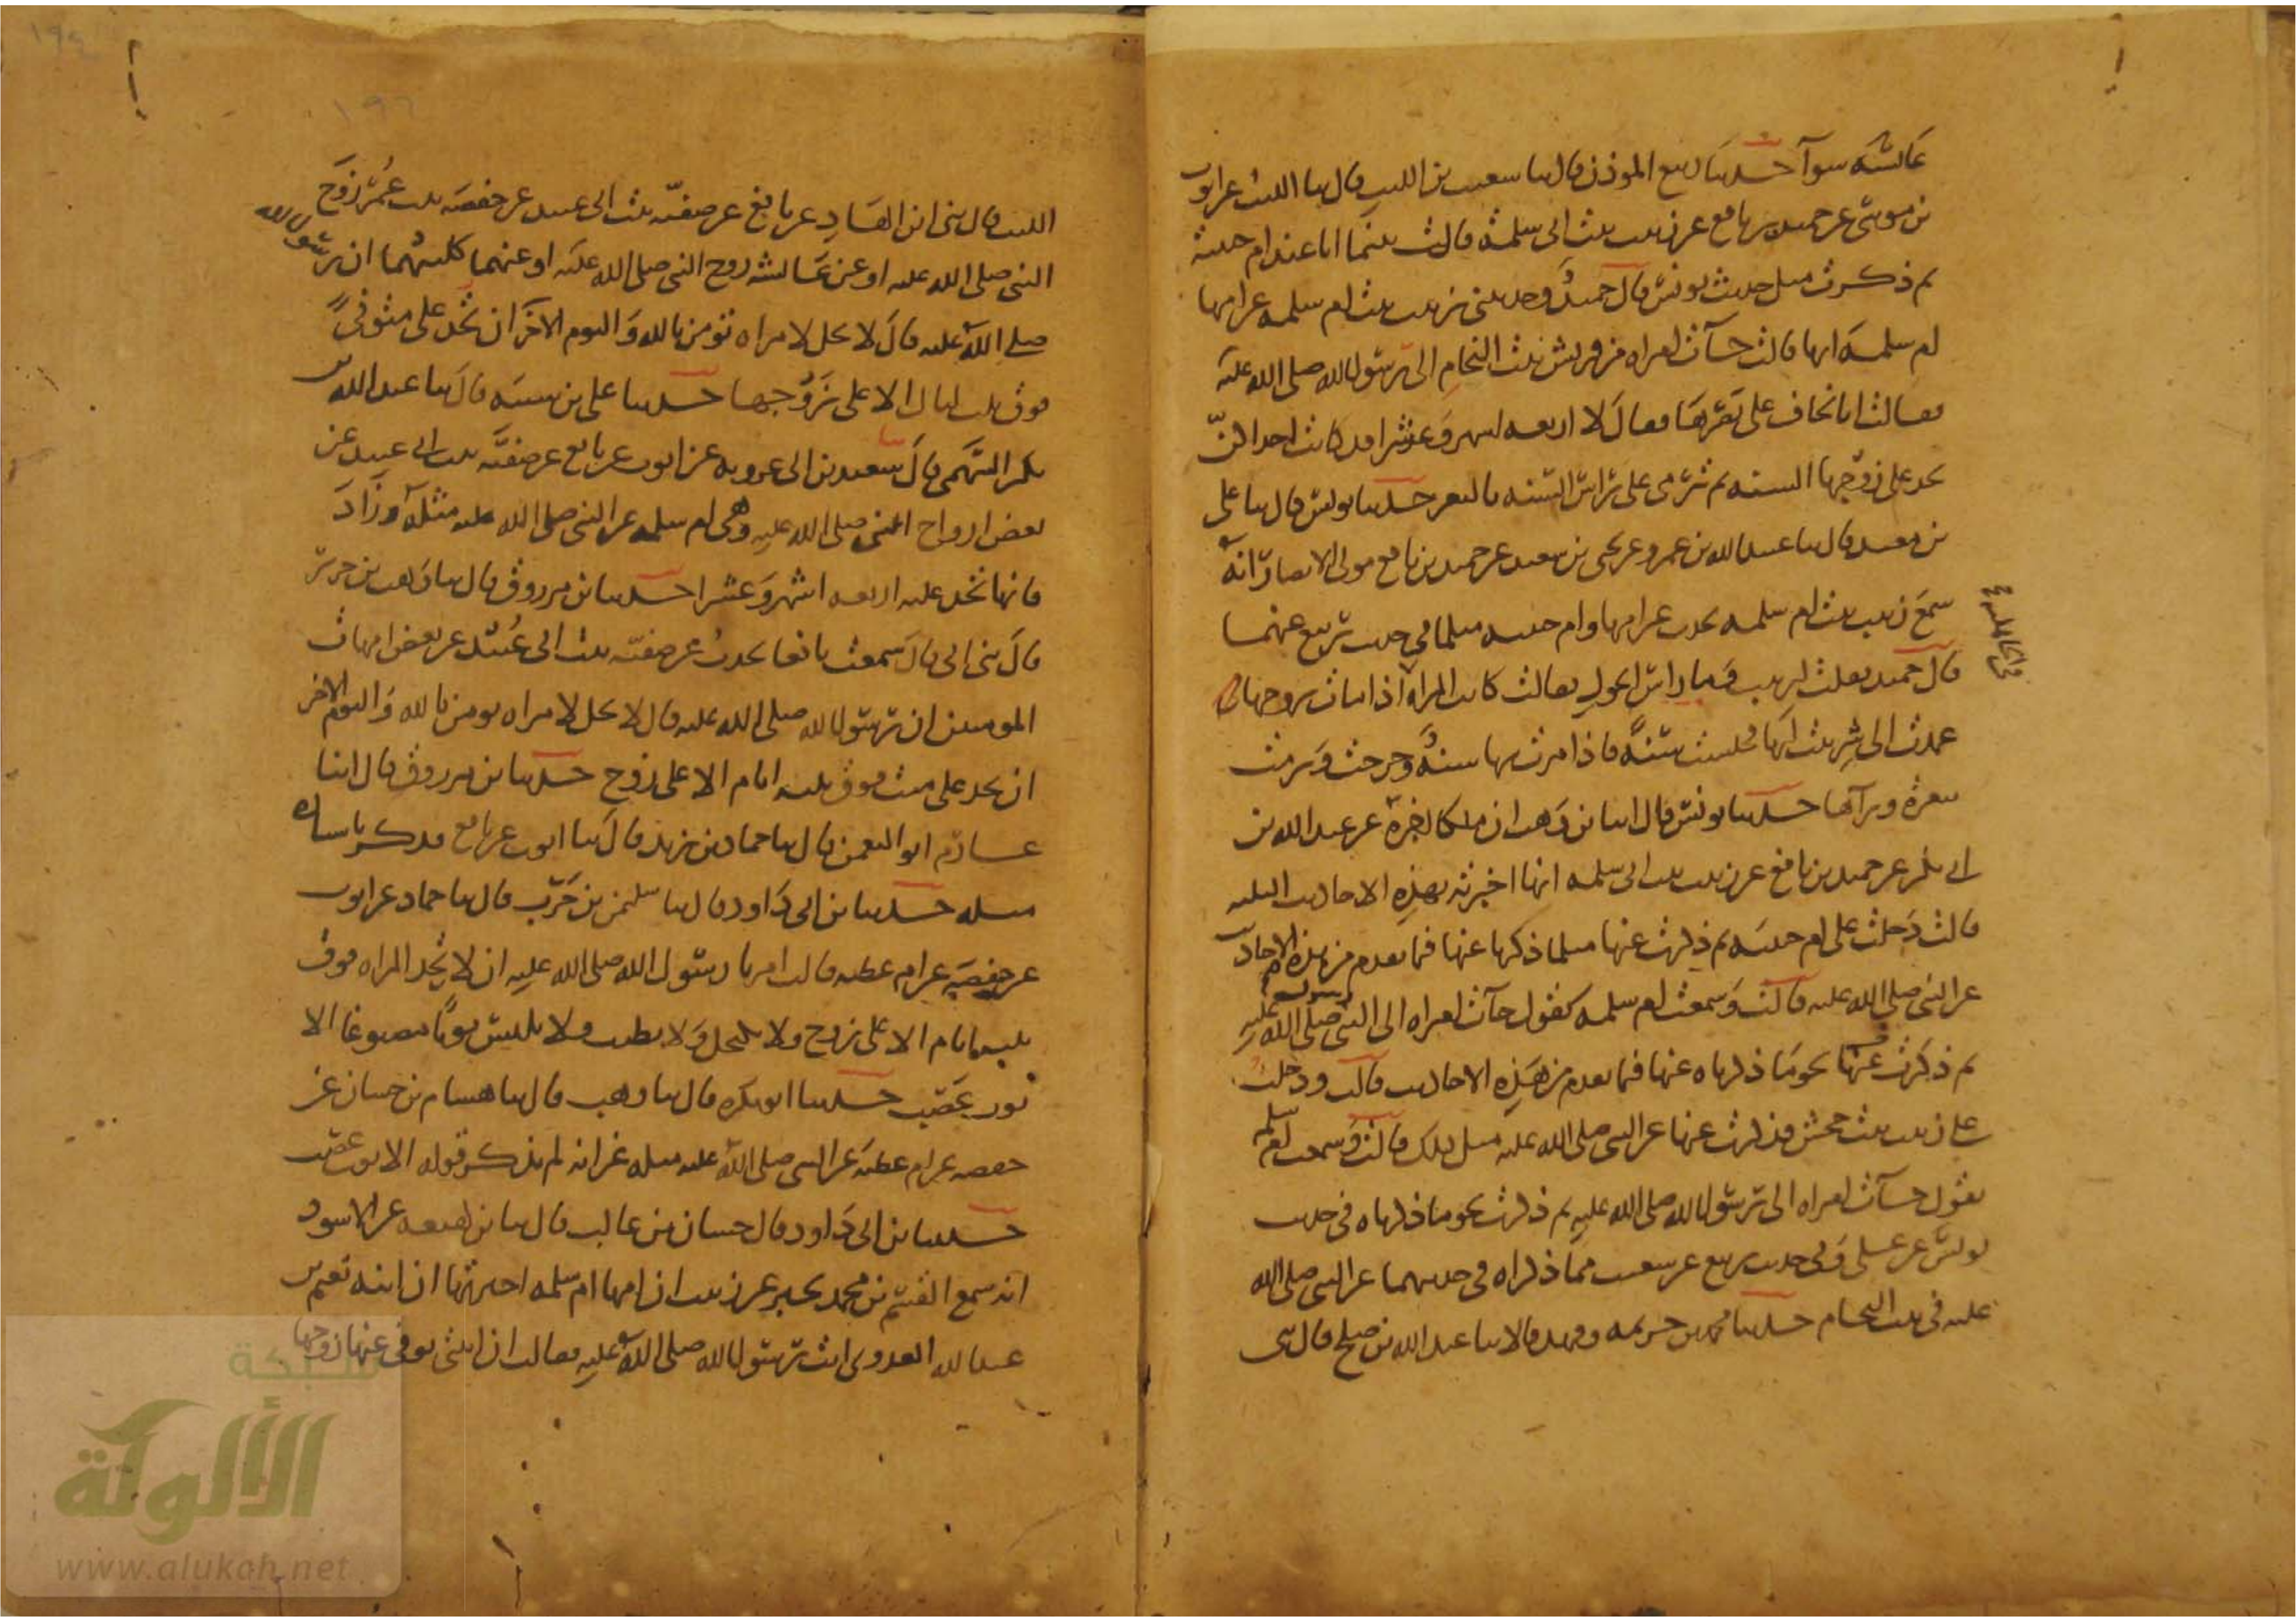 عائشه سوآ حدثنا ربيع الموذن قال ثنا شعيب بن الليث قال ثنا الليث عن ايوب
بن موسى عن حميد بن نافع عن زينب بنت ابي سلمة قالت بينما انا عند ام حبيبة
ثم ذكرت مثل حديث يونس قال حميد وحدثتني زينب بنت ام سلمه عن امها
ام سلمة انها قالت جآت امراه من قريش بنت النحام الى رسول الله صلى الله عليه
فقالت انا نخاف على بصرها فقال لا اربعه اشهر وعشرا قد كانت احداكن
تحد على زوجها السنه ثم ترمى على راس السنه بالبعر حدثنا يونس قال ثنا على
بن معبد قال ثنا عبيد الله بن عمرو عن يحيى بن سعيد عن حميد بن نافع مولى الانصار انه
سمع زينب بنت ام سلمه تحدث عن امها وام حبيبه مثل ما في حديث ربيع عنهما
قال حميد فقلت لزينب وما راس الحول فقالت كانت المراه اذا مات زوجها
عمدت الى شر بيت لها فجلست فيه سنة فاذا مرت بها سنة خرجت ورمت
ببعرة ورآها حدثنا يونس قال انا بن وهب ان ملكا اخبره عن عبد الله بن
ابي بكر عن حميد بن نافع عن زينب بنت ابي سلمه انها اخبرته بهذه الاحاديث الثلثه
قالت دخلت على ام حبيبه ثم ذكرت عنها مثل ما ذكرنا عنها فيما تقدم من هذه الاحاديث
عن النبي صلى الله عليه قالت وسمعت ام سلمه تقول جآت امراه الى النبي صلى الله عليه
ثم ذكرت عنها نحو ما ذكرناه عنها فيما تقدم من هذه الاحاديث قالت ودخلت
على زينب بنت جحش فذكرت عنها عن النبي صلى الله عليه مثل ذلك قالت وسمعت ام سلمه
تقول جآت امراه الى رسول الله صلى الله عليه ثم ذكرت نحو ما ذكرناه في حديث
يونس عن على وفي حديث ربيع عن شعيب مما ذكراه في حديثهما عن النبي صلى الله
عليه في بنت النحام حدثنا محمد بن خزيمه وفهد قالا ثنا عبد الله بن صلح قال ثنى
الليث قال ثنى ابن الهاد عن نافع عن صفية بنت ابي عبيد عن حفصه بنت عمر زوج
النبي صلى الله عليه او عن عائشه زوج النبي صلى الله عليه او عنهما كلتيهما ان رسول الله
صلى الله عليه قال لا يحل لامراه تومن بالله واليوم الاخر ان تحد على متوفى
فوق ثلث ليال الا على زوجها حدثنا على بن شيبه قال ثنا عبد الله بن
بكر السهمي قال ثنا سعيد بن ابي عروبه عن ايوب عن نافع عن صفيه بنت ابي عبيد عن
بعض ازواج النبي صلى الله عليه وهي ام سلمه عن النبي صلى الله عليه مثله وزاد
فانها تحد عليه اربعه اشهر وعشرا حدثنا بن مرزوق قال ثنا وهب بن جرير
قال ثنى ابي قال سمعت نافعا يحدث عن صفيه بنت ابي عبيد عن بعض امهات
المومنين ان رسول الله صلى الله عليه قال لا يحل لامراه تومن بالله واليوم الاخر
ان تحد على ميت فوق ثلثه ايام الا على زوج حدثنا بن مرزوق قال ثنا
عارم ابو النعمن قال ثنا حماد بن زيد قال ثنا ايوب عن نافع فذكر باسناده
مثله حدثنا بن ابي داود قال ثنا سليمن بن حرب قال ثنا حماد عن ايوب
عن حفصه عن ام عطيه قالت امرنا رسول الله صلى الله عليه ان لا تحد المراه فوق
ثلثه ايام الا على زوج ولا تكتحل ولا تطيب ولا تلبس ثوبا مصبوغا الا
ثوب عصب حدثنا ابو بكره قال ثنا وهب قال ثنا هشام بن حسان عن
حفصه عن ام عطيه عن النبي صلى الله عليه مثله غير انه لم يذكر قوله الا ثوب عصب
حدثنا بن ابي داود قال حسان بن غالب قال ثنا بن لهيعه عن ابي الاسود
انه سمع القسم بن محمد يخبر عن زينب ان امها ام سلمه اخبرتها ان ابنه نعيم بن
عبد الله العدوي اتت رسول الله صلى الله عليه فقالت ان ابنتي توفي عنها زوجها
شبكة
الألوكة
www.alukah.net